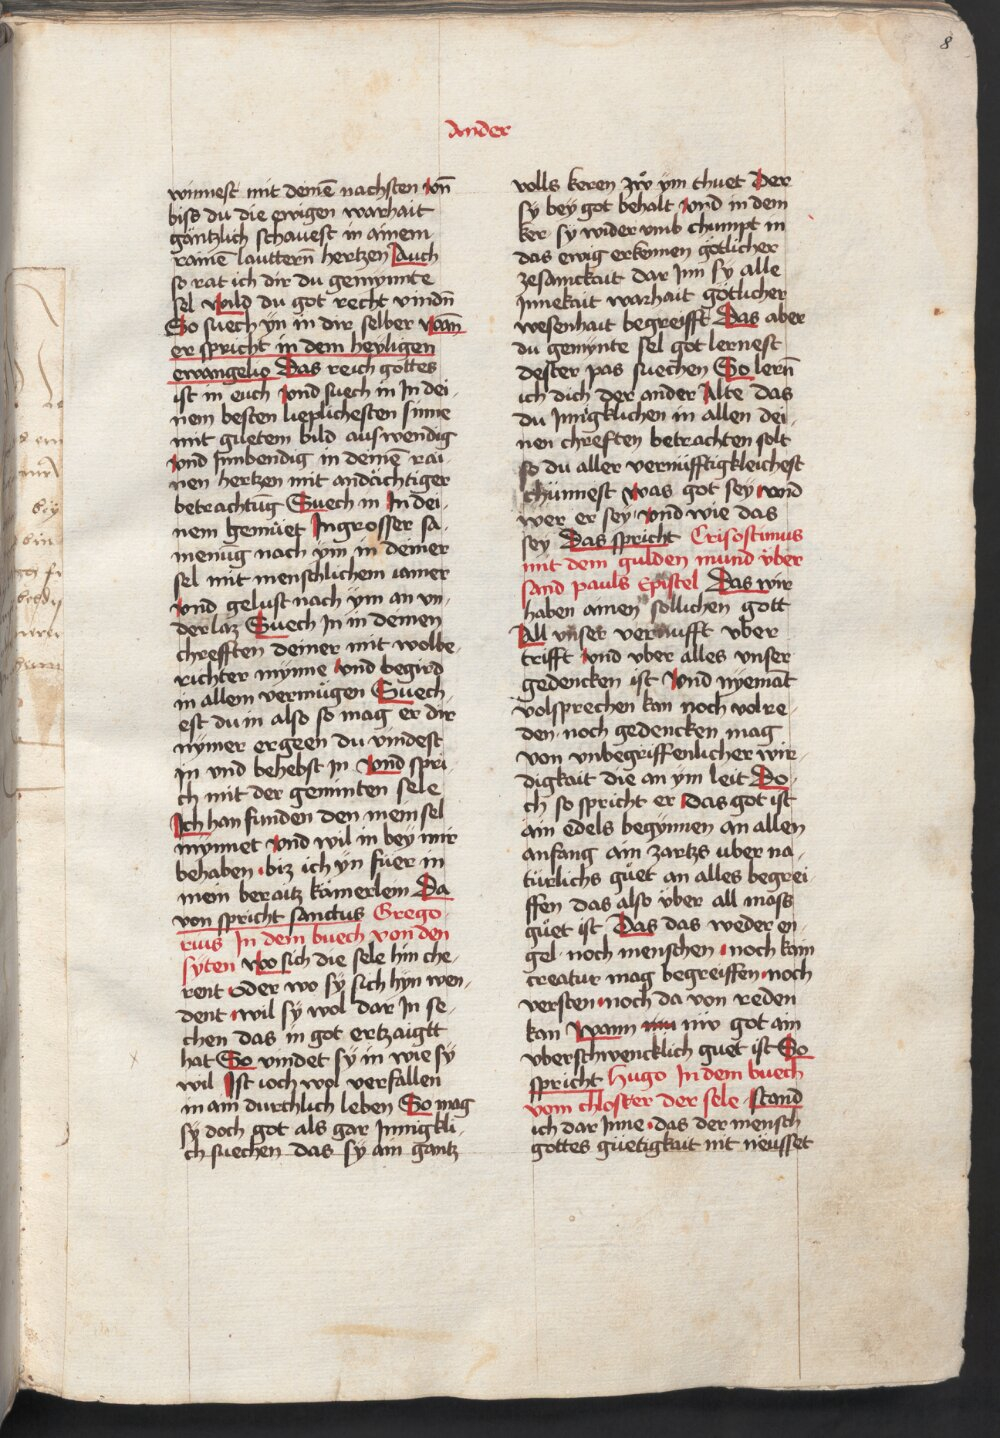 8
Ander
winnest mit deinē nachsten vn̄
biss du die ewigen warhait
gäntzlich schauest in ainem
rainē lauttern̄ hertzen Auch
so rat ich dir du gemynnte
sel wild du got recht vindn̄
So suech yn in dir selber wan̄
er spricht in dem heyligen
ewangelio Das reich gottes
ist in euch Vnd suech in In dei-
nem besten lieplichesten sinne
mit guetem bild auswendig
Vnd Innbendig in deinē rai-
nen hertzen mit andächtiger
betrachtūg Suech in In dei-
nem gemüet In grosser sa-
menūg nach ym in deiner
sel mit menschlichem iamer
Vnd gelust nach ym an vn-
derlaz Suech In in deinen
chrefften deiner mit wolbe-
richter mynne Vnd begird
in allem vermügen Suech-
est du in also so mag er dir
nymer ergeen du vindest
in vnd behebst in Vnd spri-
ch mit der geminten sele
Ich han funden den mein sel
mynnet Vnd wil in bey mir
behaben biz ich yn füer in
mein beraitz kamerlem Da
von spricht sanctus Grego-
rius In dem buech von den
syten Wo sich die sele hin che-
rent Oder wo sy sich hyn wen-
dent wil sy wol dar In se-
chen das in got ertzaigtt
hat So vindet sy in wie sy
wil Ist ioch wol verfallen
in ain durthlich leben So mag
sy doch got als gar Innigkli-
ch suechen das sy ain gantz
volls keren zw ym thuet Der
sy bey got behalt Vnd in dem
ker sy wider vmb chumpt in
das ewig erkennen götlicher
zesamckait dar Inn sy alle
Innekait warhait götlicher
wesenhait begreifft Das aber
du gemynte sel got lernest
dester pas suechen So lern̄
ich dich der ander Alte das
du Innigklichen in allen dei-
nen chreften betrachten solt
so du aller vernüfftigkleichest
chünnest Was got sey vnd
wer er sey Vnd wie das
sey Das spricht Crisostimus
mit dem gulden mund über
sand pauls Epistel Das wir
haben ainen sollichen gott
All vnser vernufft vber
trifft Vnd vber alles vnser
gedencken ist Vnd nyemat
volsprechen kan noch volre-
den noch gedencken mag
von vnbegriffenlicher wir-
digkait die an ym leit Do-
ch so spricht er das got ist
ain edels begynnen an allen
anfang ain zartzs uber na-
türlichs güet an alles begrei-
ffen das also über all mass
güet ist Das das weder en-
gel noch menschen noch kain
creatur mag begreiffen noch
versten noch da von reden
kan Wann nw got ain
vberschwencklich guet ist So
spricht Hugo In dem buech
vom chloster der sele Stand
ich dar Inne das der mensch
gottes güetigkait nit neusset